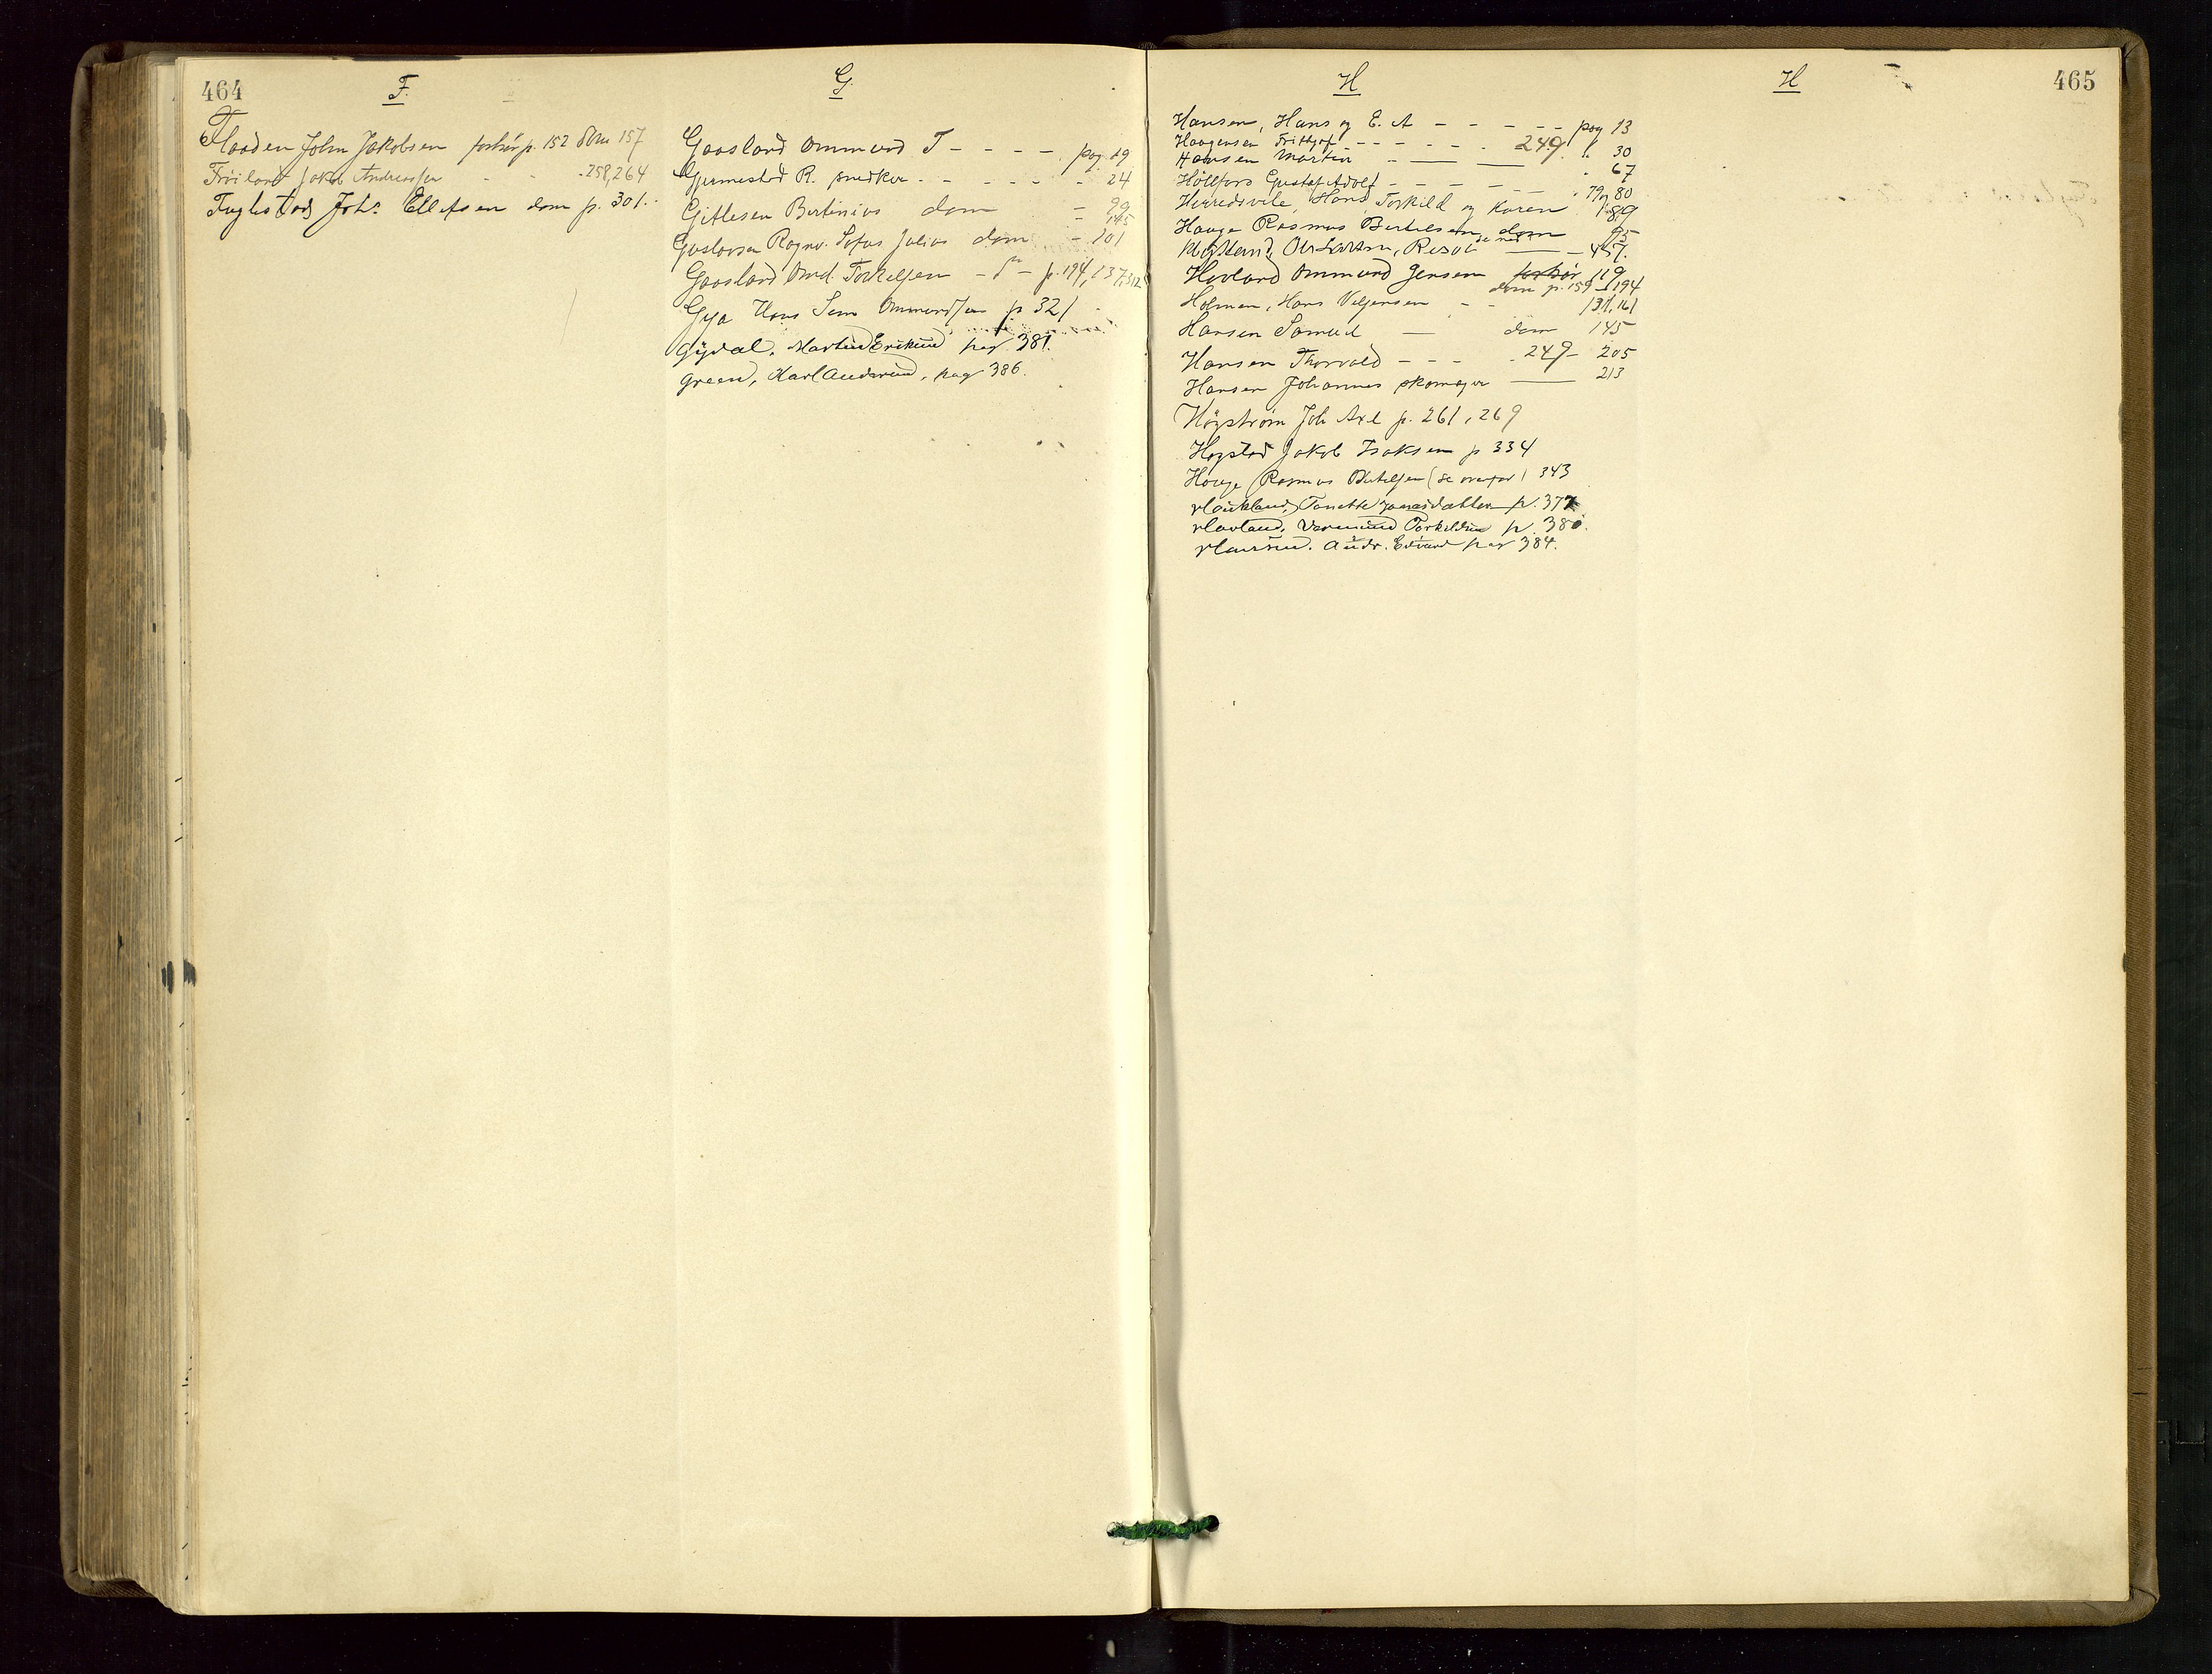 464
F.
Flaaden John Jakobsen forhør p. 152 dom 157
Frøiland Jakob Andreassen - - - 258, 264
Fuglestad Johs Ellefsen dom p. 301.
G.
Gaasland Ommund T - - - - pag. 19
Gjermestad R. snedker - - - - - 24
Gitlesen Bertinius dom - 99
Gustavsen Ragnv. Sofus Julius dom - 101
Gaasland Omd. Torkelsen - p. 194, 137, 312
Gya Hans Sem Ommundsen p. 321
Gydal, Martin Eriksen pag 381.
Green, Karl Andersen, pag 386.
H
Hansen, Hans og E. A - - - - - pag 13
Haagensen Frithjof - - - - - - 249 30
Hansen Martin
Hollfors Gustaf Adolf - - - - - 67
Herredsvele, Hans Torkild og Karen 79 og 80
Hauge Rasmus Bertelsen dom 89
se ned
Høyland Ommund Jensen forhør 119
dom p. 159 - 194
Holmen, Hans Veljersen - - 137, 161
Hansen Samuel — dom 145
Hansen Thorvald - - - - 249 - 205
Hansen Johannes skomager — 213
Høgstrøm Joh Axel p. 261, 269
Hogstad Jakob Isaksen p 334
Hauge Rasmus Bertelsen (se ovenfor) 343
Haukland, Tonette Jonasdatter p. 377
Havland, Varmund Torkildsen p. 380.
Hansen. Andr. Edvard pag 384.
H
465